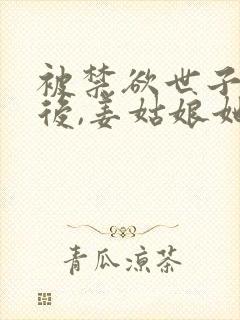 被禁欲世子
後,姜姑娘她
青瓜凉茶